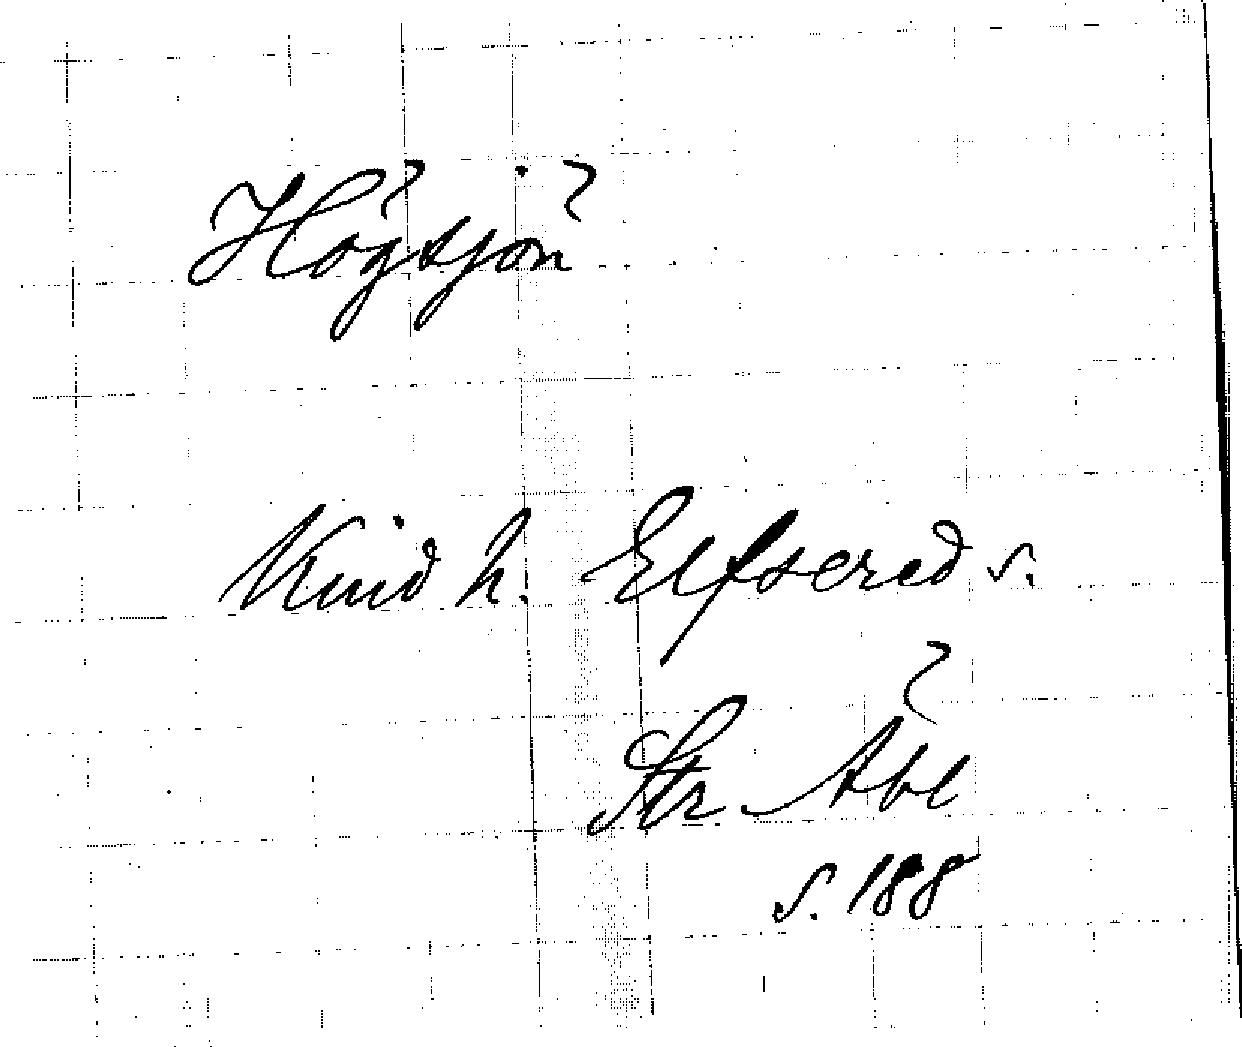 Högsjön
Kind h. Elfsered s.
Str Abl
s. 188